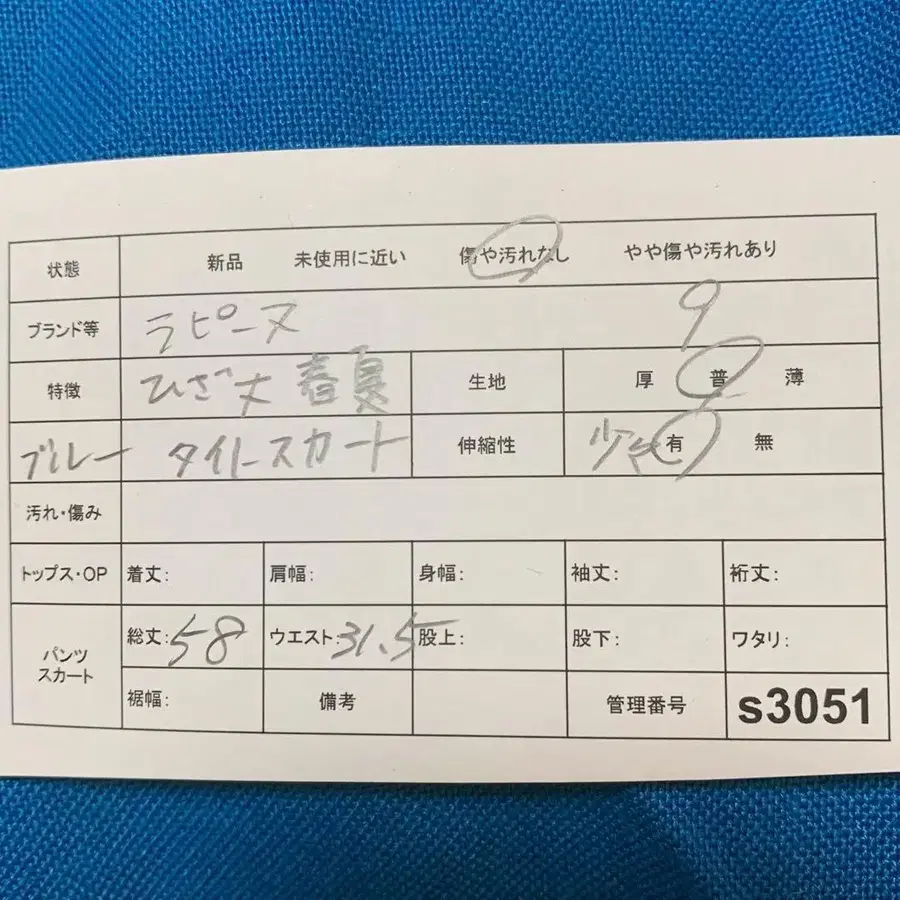 状態 新品 未使用に近い 傷や汚れなし やや傷や汚れあり
ブランド等 ラピーヌ 9
特徴 ひざ丈 春夏 生地 厚 普 薄
ブルー タイトスカート 伸縮性 少々 有 無
汚れ・傷み
トップス・OP 着丈: 肩幅: 身幅: 袖丈: 裄丈:
パンツ
スカート
総丈: 58 ウエスト: 31.5 股上: 股下: ワタリ:
裾幅: 備考 管理番号 s3051